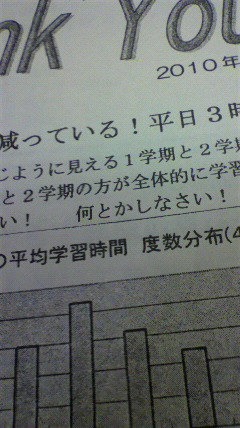 nk You
2010年
減っている!平日3時
じように見える1学期と2学期
と2学期の方が全体的に学習
い! 何とかしなさい!
の平均学習時間 度数分布(4